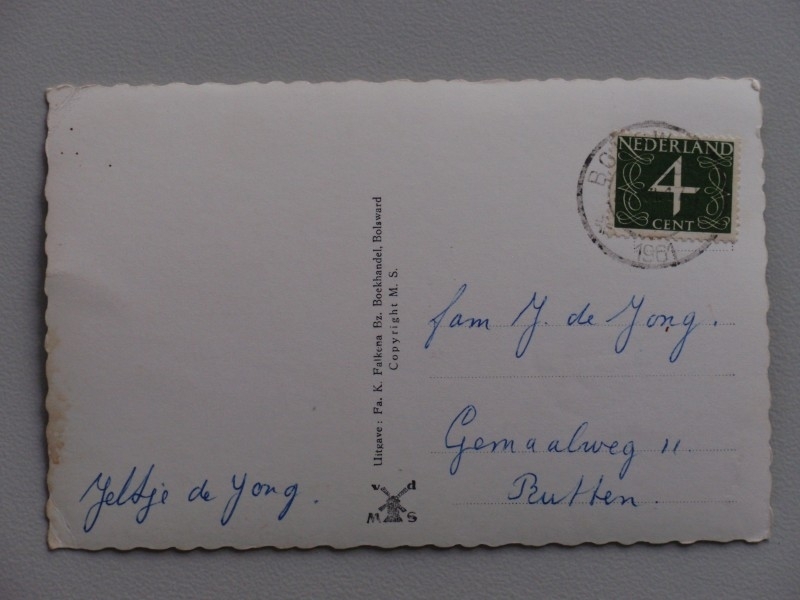 NEDERLAND
4
CENT
1961
Uitgave: Fa. K. Falkena Bz. Boekhandel, Bolsward
Copyright M. S.
fam J. de Jong.
Gemaalweg 11
Rutten.
Jeltje de Jong.
v d
M S